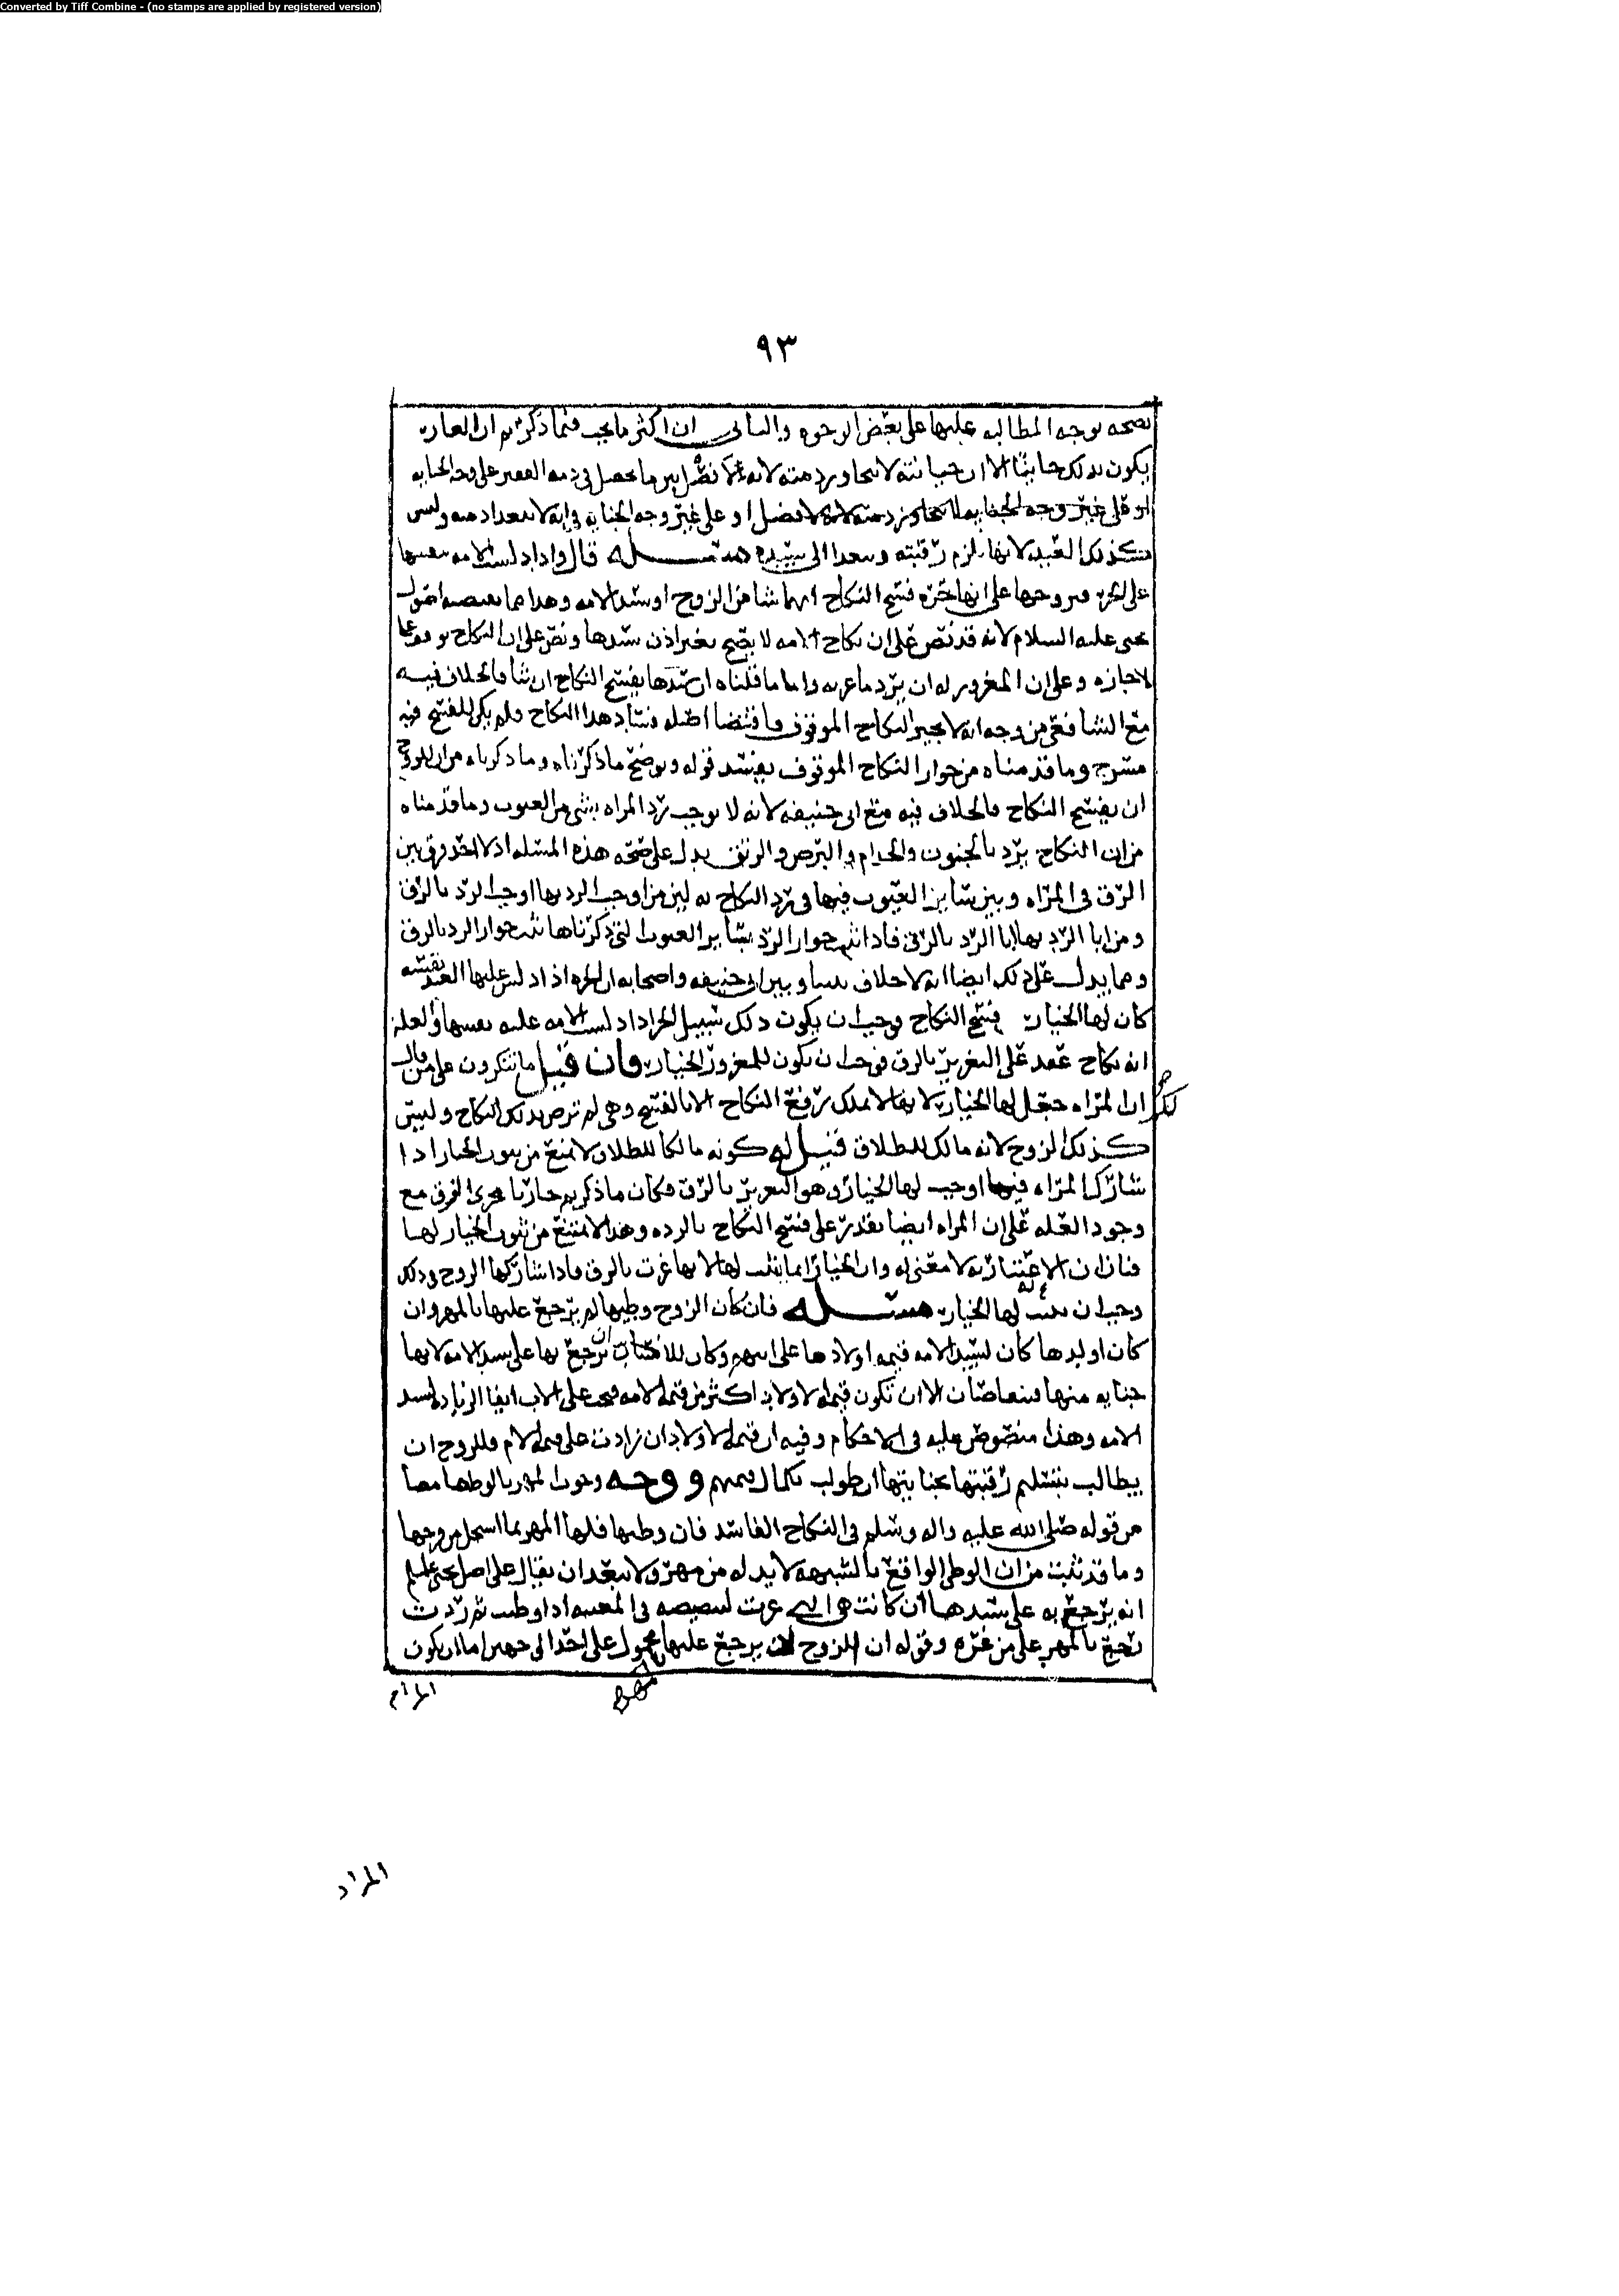 Converted by Tiff Combine - (no stamps are applied by registered version)
٩٣
يصحه توجه المطالبه عليها على بعض الوجوه والثاني ان اكثر ما يجب فيما ذكرتم ان العار
يكون بذلك جانيا الا ان جنايته لا تتجاوز ذمته لانه لا فصل بين ما يحصل في ذمه الفقير على وجه الجنايه
او على غير وجه الجنايه او على غير وجه الجنايه في انه لا يتعدا ذمته وليس
كذلك العبد لانها تلزم رقبته وتتعدا الى سيده مسئله قال واذا دلست الامه نفسها
على الحر فتزوجها على انها حره فسخ النكاح ايهما شا من الزوج او سيد الامه وهذا مما يقتضيه اصول
يحيى عليه السلام لانه قد نص على ان نكاح الامه لا يصح بغير اذن سيدها ونص على ان النكاح يوقف
لاجازه وعلى ان المغرور له ان يرد ما غر به واما ما قلناه ان سيدها يفسخ النكاح ان شا فالخلاف فيه
مع الشافعي من وجه انه لا يجيز النكاح الموقوف فاقتضا اصله فساد هذا النكاح ولم يكن للفسخ فيه
مسرح وما قدمناه من جواز النكاح الموقوف يفسد قوله ويوضح ما ذكرناه وما ذكرناه من ان للزوج
ان يفسخ النكاح فالخلاف فيه مع ابي حنيفه لانه لا يوجب رد المراه بشي من العيوب وما قدمناه
من ان النكاح يرد بالجنون والجذام والبرص والرتق يدل على صحه هذه المسئله اذ لا احد فرق بين
الرق في المراه وبين سائر العيوب فيها في رد النكاح به لان من اوجب الرد بها اوجب الرد بالرق
ومن ابا الرد بها ابا الرد بالرق فاذا ثبت جواز الرد بسائر العيوب التي ذكرناها ثبت جواز الرد بالرق
ومما يدل على ذلك ايضا انه لا خلاف بيننا وبين ابي حنيفه واصحابه ان الحره اذا دلس عليها العبد نفسه
كان لها الخيار في فسخ النكاح فوجب ان يكون ذلك سبيل الحر اذا دلست الامه عليه نفسها والعله
انه نكاح عقد على التغرير بالرق فوجب ان يكون للمغرور الخيار فان قيل ما تنكرون على من قال
لكم ان المراه جعل لها الخيار لانها لا تملك رفع النكاح الا بالفسخ وهي لم ترض بذلك النكاح وليس
كذلك الزوج لانه مالك للطلاق قيل له كونه مالكا للطلاق لا يمنع من ثبوت الخيار اذا
شارك المراه فيما اوجب لها الخيار وهو التغرير بالرق فكان ما ذكرتم جاريا مجرى الفرق مع
وجود العله على ان المراه ايضا تقدر على فسخ النكاح بالرده وهذا لا يمنع من ثبوت الخيار لها
فبان ان الاعتبار به لا معنى له وان الخيار انما يثبت لها لانها غرت بالرق فاذا شاركها الزوج في ذلك
وجب ان يثبت له الخيار مسئله فان كان الزوج وطيها لم يرجع عليها بالمهر وان
كان اولدها كان لسيد الامه قيمه اولادها على ابيهم وكان للاب ان يرجع بها على سيد الامه لانها
جنايه منها فيتقاصان الا ان تكون قيمه الاولاد اكثر من قيمه الامه فيجب على الاب ايفا الزياده لسيد
الامه وهذا منصوص عليه في الاحكام وفيه ان قيمه الاولاد ان زادت على قيمه الام فللزوج ان
يطالب بتسليم رقبتها بجنايتها ان طولب بكمال قيمتهم ووجه وجوب المهر بالوطي ما مضا
من قوله صلى الله عليه واله وسلم في النكاح الفاسد فان وطيها فلها المهر بما استحل من فرجها
وما قد ثبت من ان الوطي الواقع بالشبهه لا بد له من مهر ولا يبعد ان يقال على اصل يحيى عليلم
انه يرجع به على سيدها ان كانت هي التي غرت لنصه في المعيبه اذا وطيت ثم ردت
يرجع بالمهر على من غره وقوله ان الزوج لا يرجع عليها محمول على احدا الى جهين اما ان يكون
المراد